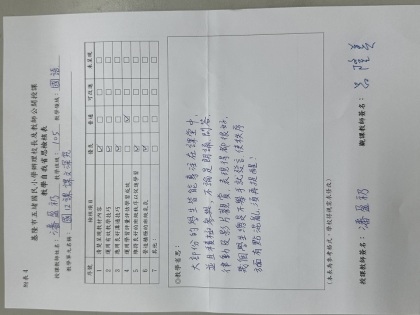 附表4
基隆市五堵國民小學辦理校長及教師公開授課
教學自我省思檢核表
授課教師姓名：潘盈礽 教學班級：105 教學領域：國語
教學單元名稱：國L2課 課文探究
序號 檢核項目 優良 普通 可改進 未呈現
1 清楚呈現教材內容 ☑ □ □ □
2 運用有效教學技巧 ☑ □ □ □
3 應用良好溝通技巧 ☑ □ □ □
4 運用學習評量評估學習成效 □ ☑ □ □
5 維持良好的班級秩序以促進學習 ☑ □ □ □
6 營造積極的班級氣氛 ☑ □ □ □
7 其他： □ □ □ □
◎教學省思：
大部份的學生皆能專注在課堂中,
並且積極參與,不論是朗誦、問答、
律動及影片觀賞,表現得都很好,
幾個學生總是不舉手就發言使秩序
方面有點混亂,須再提醒!
(本表為參考格式，學校得視需求修改)
授課教師簽名：潘盈礽 觀課教師簽名：呂隆義